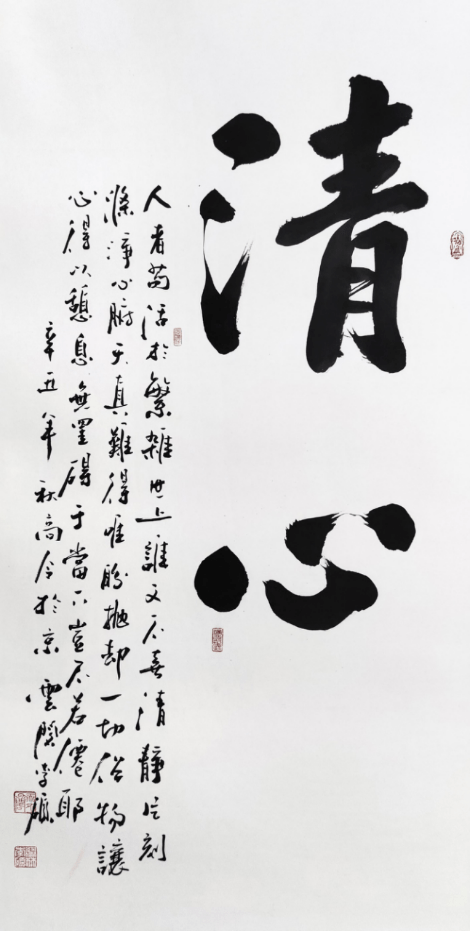 清心
人者苟活於繁雜世上誰又不喜清靜片刻
滌淨心腑天真難得唯盼拋却一切俗物讓
心得以憩息無罣礙于當下豈不若僊耶
辛丑年秋高令於京雲